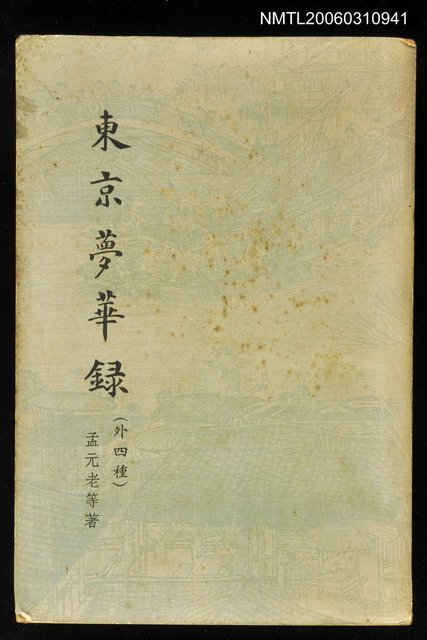 NMTL20060310941
東京夢華録
（外四種）
孟元老等著